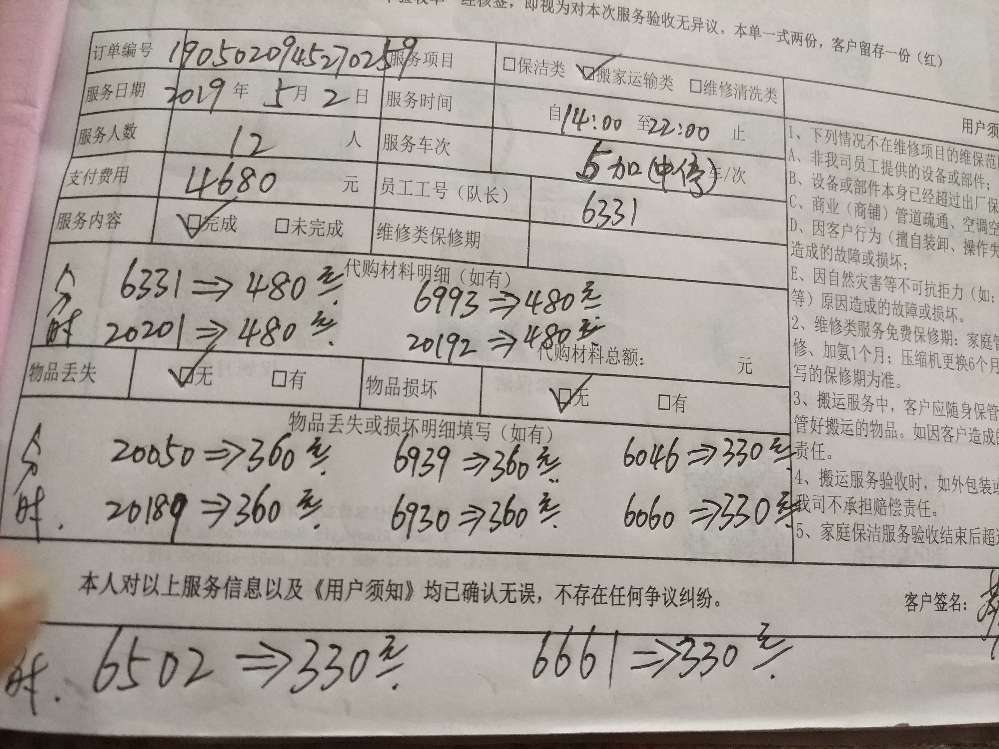 即视为对本次服务验收无异议。本单一式两份，客户留存一份（红）
订单编号 1905020945270259 服务项目 □保洁类 ☑搬家运输类 □维修清洗类
服务日期 2019年5月2日 服务时间 自14:00至22:00止
服务人数 12人 服务车次 5加(中停)车/次
支付费用 4680元 员工工号（队长） 6331
服务内容 ☑完成 □未完成 维修类保修期
代购材料明细（如有）
6331⇒480元 6993⇒480元
时 20201⇒480元 20192⇒480元
代购材料总额： 元
物品丢失 ☑无 □有 物品损坏 ☑无 □有
物品丢失或损坏明细填写（如有）
20050⇒360元 6939⇒360元 6046⇒330元
时. 20189⇒360元 6930⇒360元 6060⇒330元
用户须
1、下列情况不在维修项目的维保范
A、非我司员工提供的设备或部件；
B、设备或部件本身已经超过出厂保
C、商业（商铺）管道疏通、空调空
D、因客户行为（擅自装卸、操作失
造成的故障或损坏；
E、因自然灾害等不可抗拒力（如：
等）原因造成的故障或损坏。
2、维修类服务免费保修期：家庭管
修、加氨1个月；压缩机更换6个月
写的保修期为准。
3、搬运服务中，客户应随身保管
管好搬运的物品。如因客户造成的
责任。
4、搬运服务验收时，如外包装或
我司不承担赔偿责任。
5、家庭保洁服务验收结束后超过
本人对以上服务信息以及《用户须知》均已确认无误，不存在任何争议纠纷。 客户签名：
时. 6502⇒330元 6661⇒330元